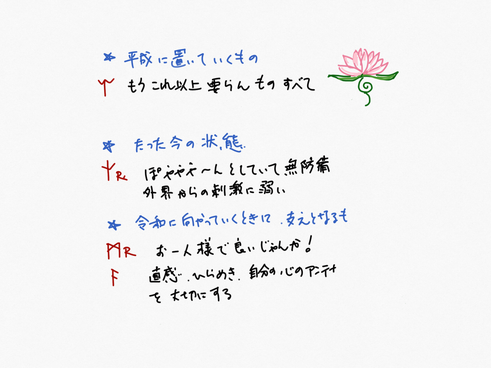 ☆ 平成に置いていくもの
ᛉ もうこれ以上 要らんものすべて
☆ たった今の状態
ᛉR ぽややや〜んとしていて無防備
外界からの刺激に弱い
☆ 令和に向かっていくときに、支えとなるもの
ᛗR お一人様で良いじゃんか!
ᚨ 直感、ひらめき、自分の心のアンテナ
を大切にする